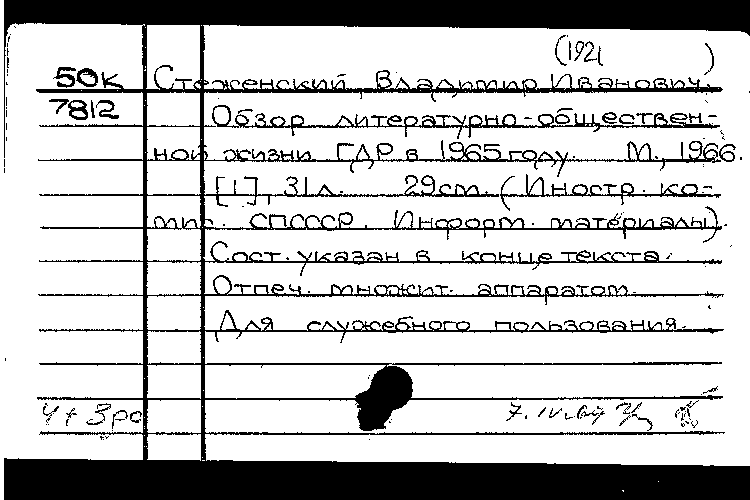 (1921 )
50к Стеженский, Владимир Иванович.
7812 Обзор литературно-обществен-
ной жизни ГДР в 1965 году. М., 1966.
[1], 31 л. 29 см. (Иностр. ко-
мис. СПСССР. Информ. материалы).
Сост. указан в конце текста.
Отпеч. множит. аппаратом.
Для служебного пользования.